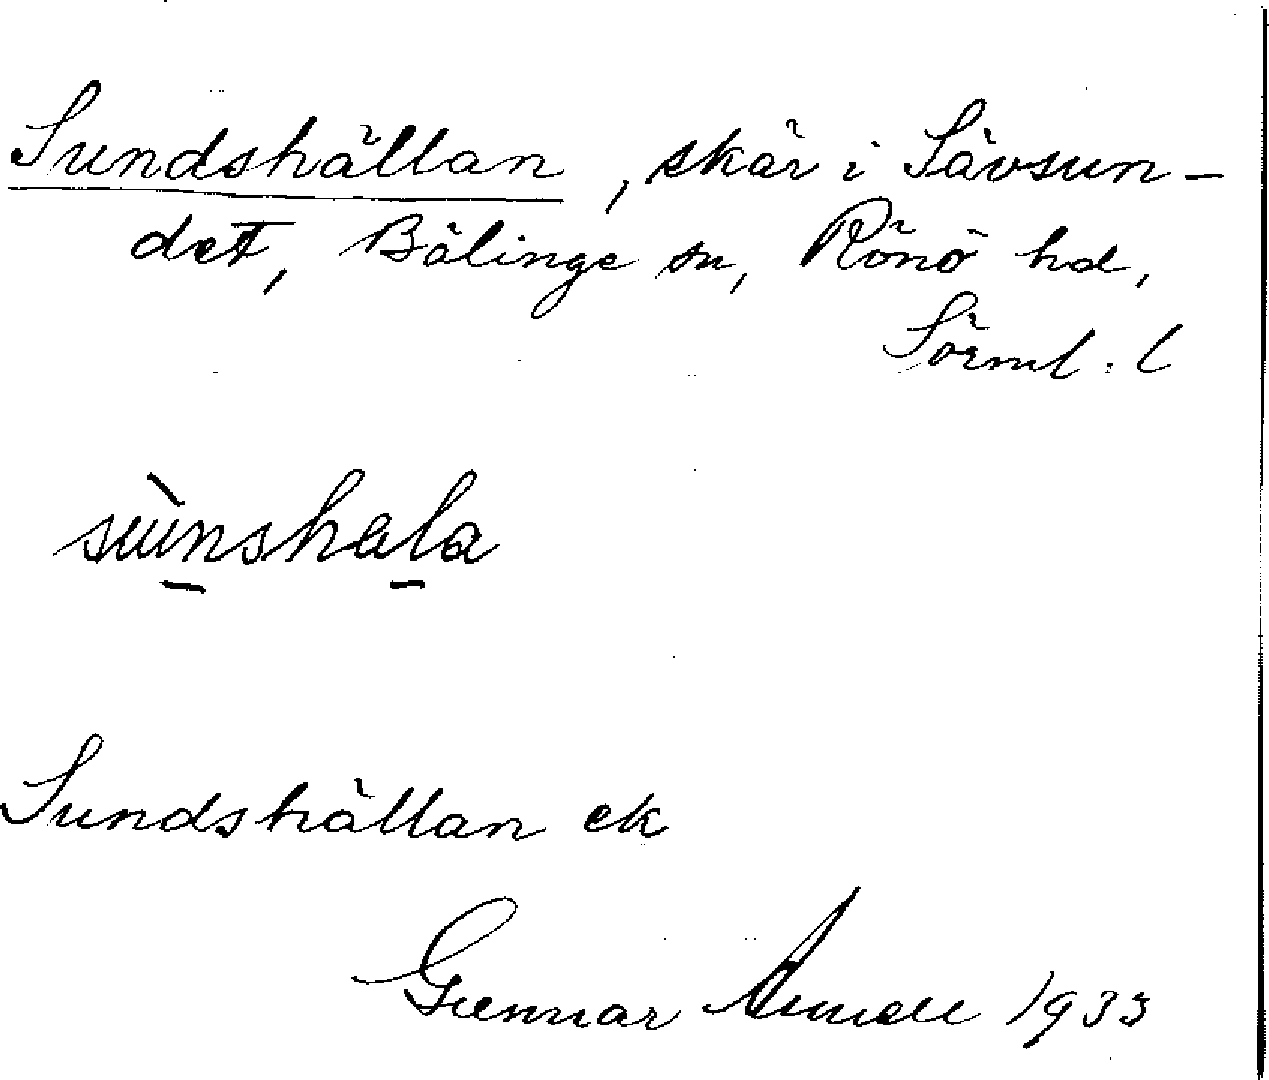 Sundshällan, skär i Sävsun-
det, Bälinge sn, Rönö hd,
Sörml. l
Sundshällan ek
Gunnar 1933